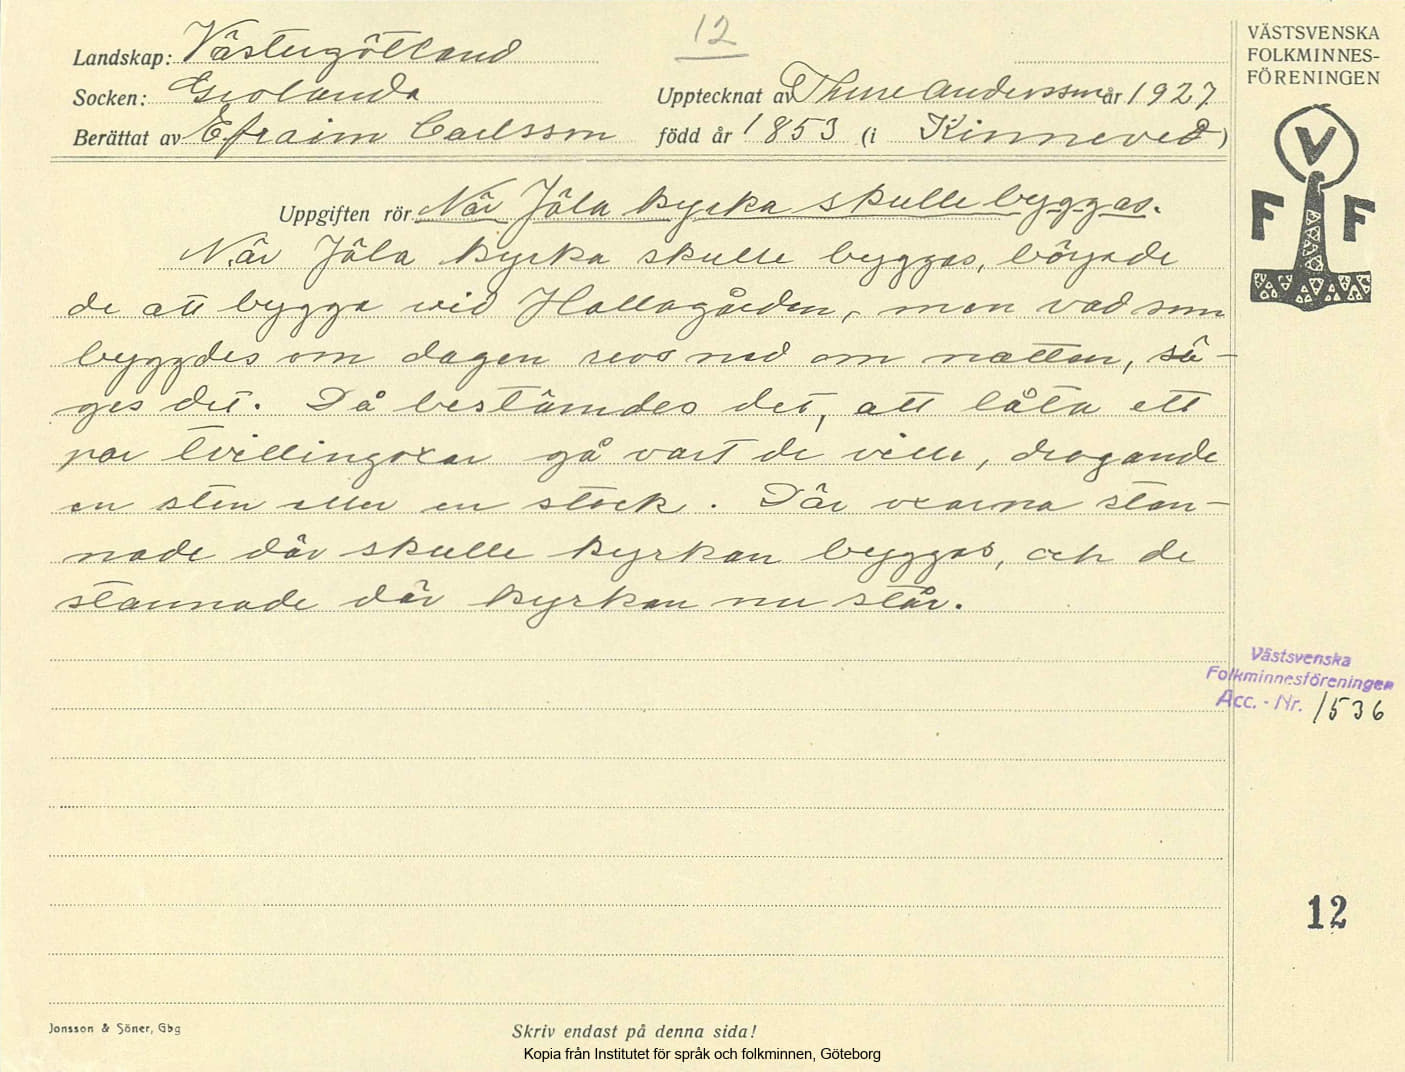 12
VÄSTSVENSKA
FOLKMINNES-
FÖRENINGEN
Landskap: Västergötland
Socken: Grolanda Upptecknat av Thure Andersson år 1927
Berättat av Efraim Carlsson född år 1853 (i Kinneved)
V
F F
Uppgiften rör När Jäla kyrka skulle byggas.
När Jäla kyrka skulle byggas, började
de att bygga vid Hallagården, men vad som
byggdes om dagen revs ned om natten, sä-
ges det. Då bestämdes det, att låta ett
par tvillingoxar gå vart de ville, dragande
en sten eller en stock. Där oxarna stan-
nade där skulle kyrkan byggas, och de
stannade där kyrkan nu står.
Västsvenska
Folkminnesföreningen
Acc. - Nr. 1536
12
Jonsson & Söner, Gbg
Skriv endast på denna sida!
Kopia från Institutet för språk och folkminnen, Göteborg